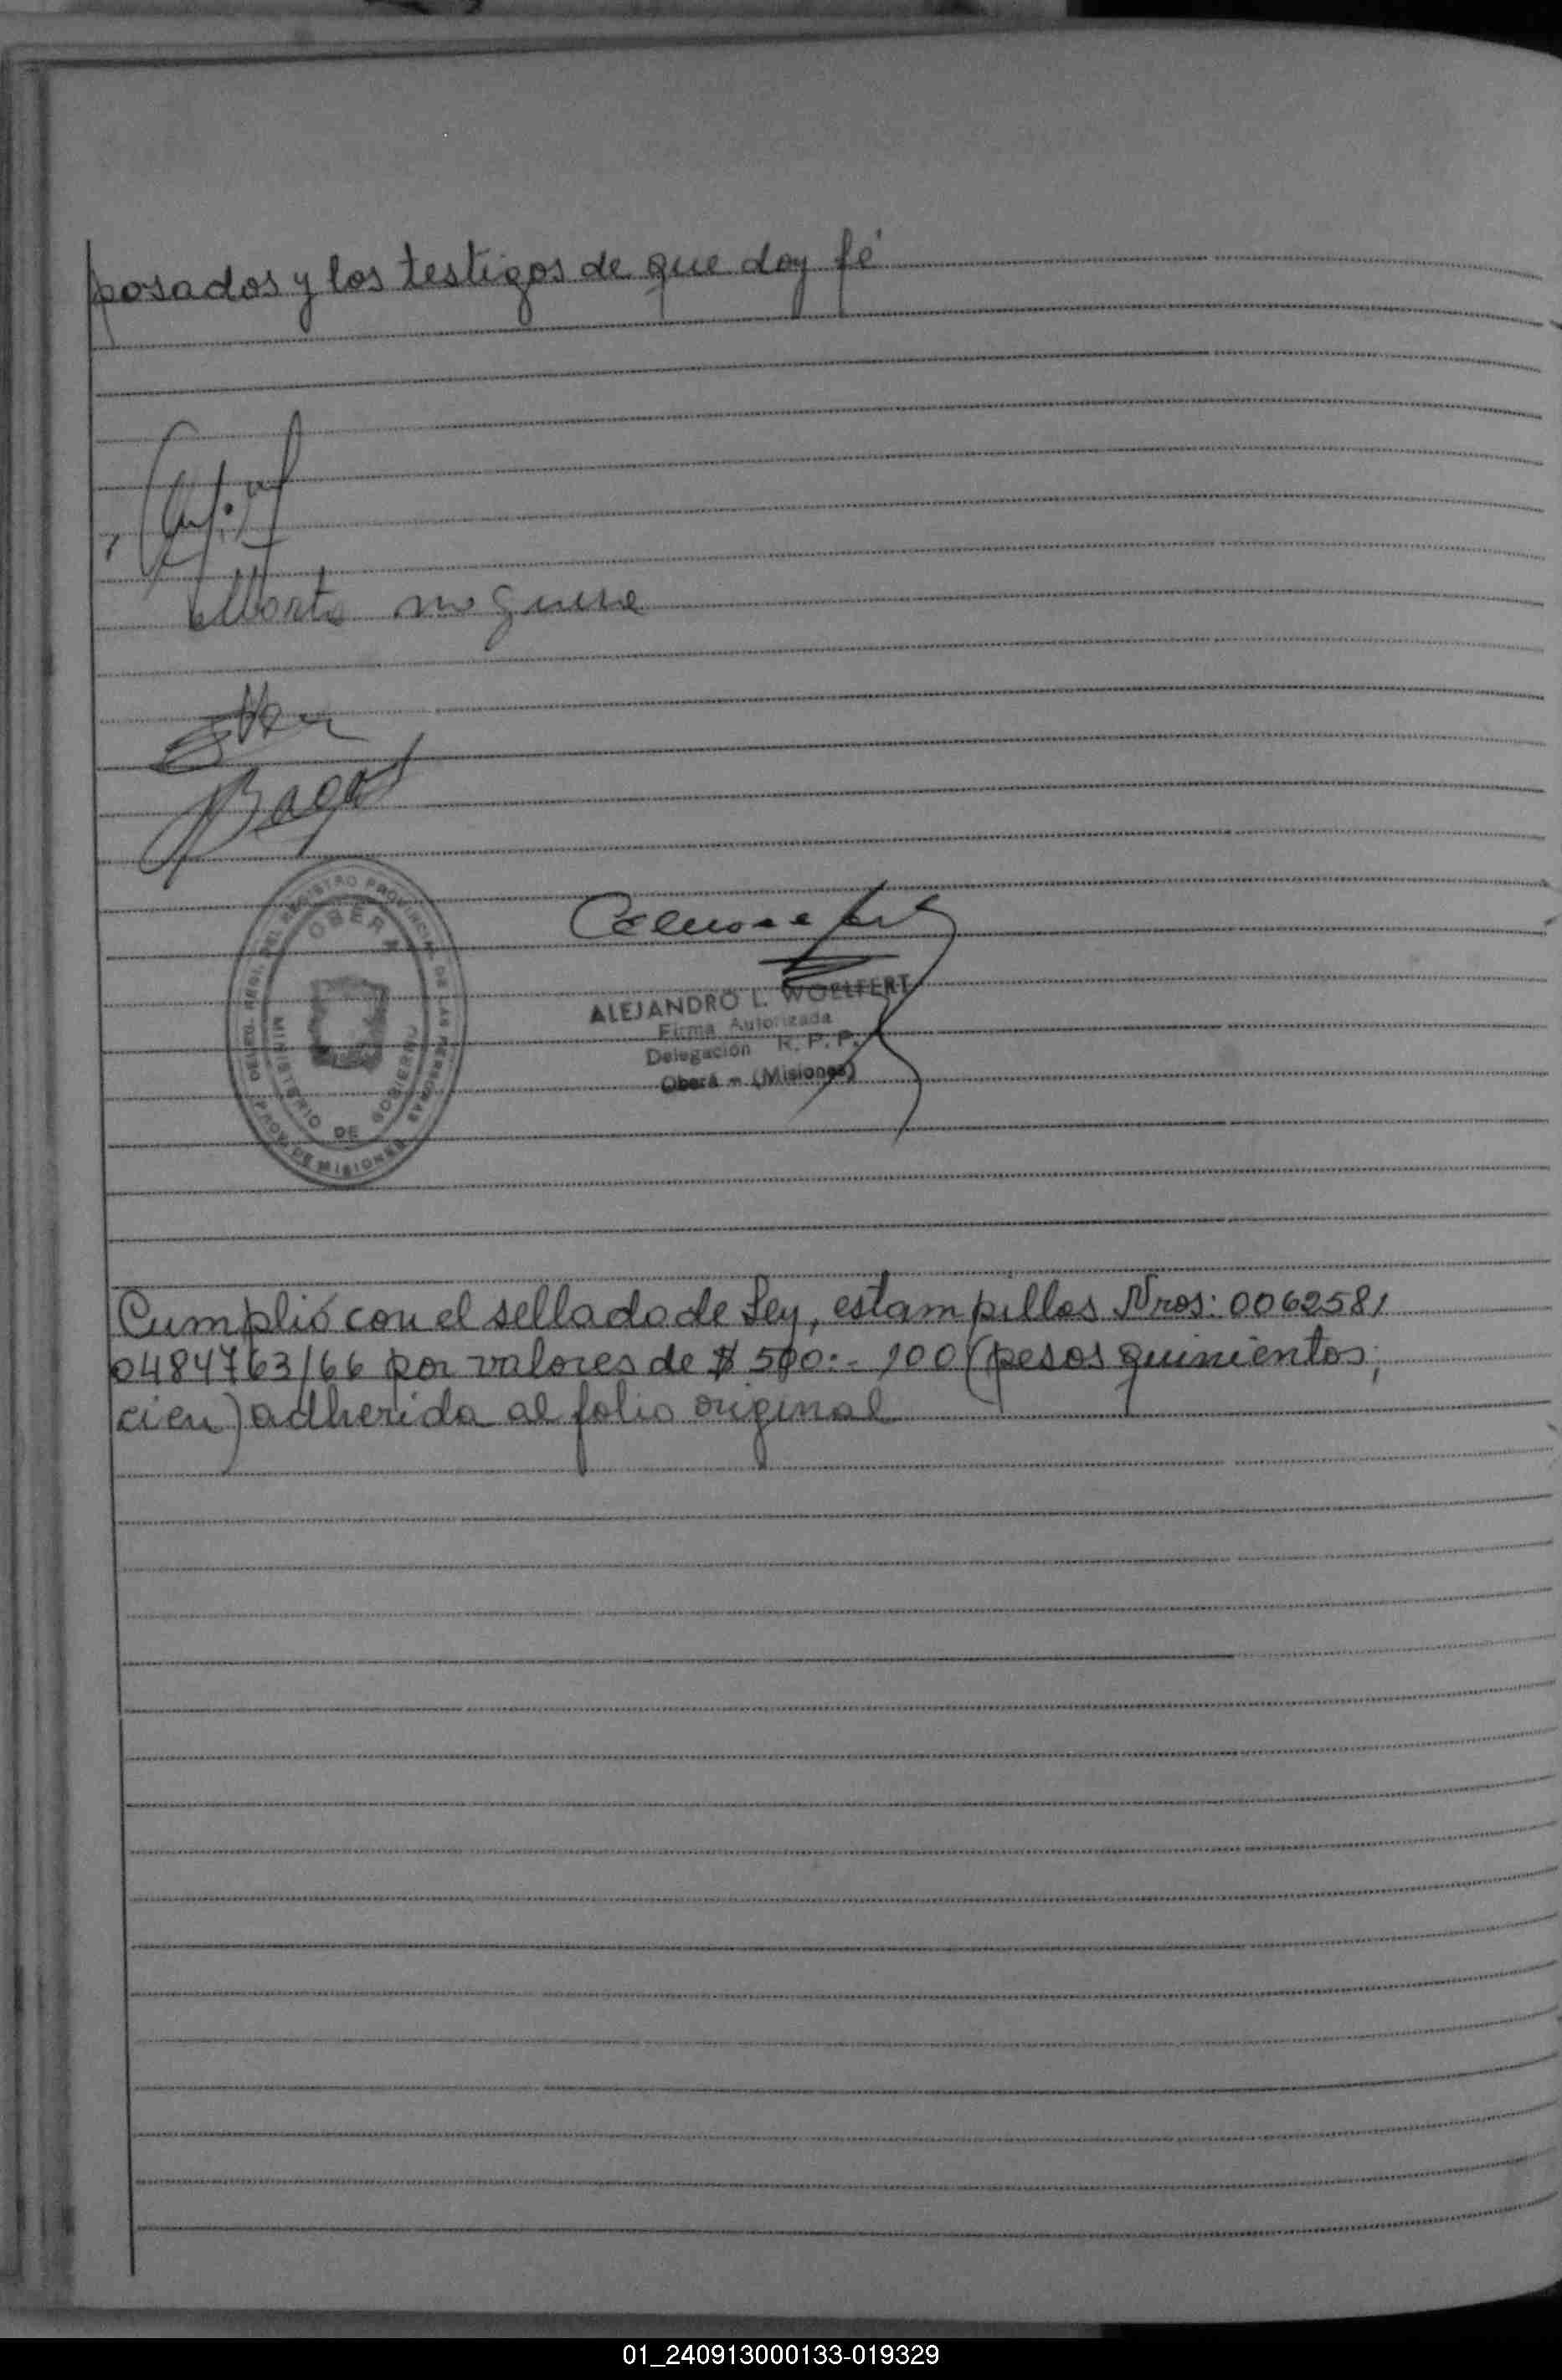 posados y los testigos de que doy fé
Alberto
Bago
DELEG. REGI. DEL REGISTRO PROVINCIAL DE LAS PERSONAS
OBERA
MINISTERIO DE GOBIERNO
PROV. DE MISIONES
ALEJANDRO L. WOELFERT
Firma Autorizada
Delegación R. P. P.
Oberá - (Misiones)
Cumplió con el sellado de Ley, estampillas Nros: 0062581
0484763/66 por valores de $ 500:- 100 (pesos quinientos;
cien) adherida al folio original
01_240913000133-019329